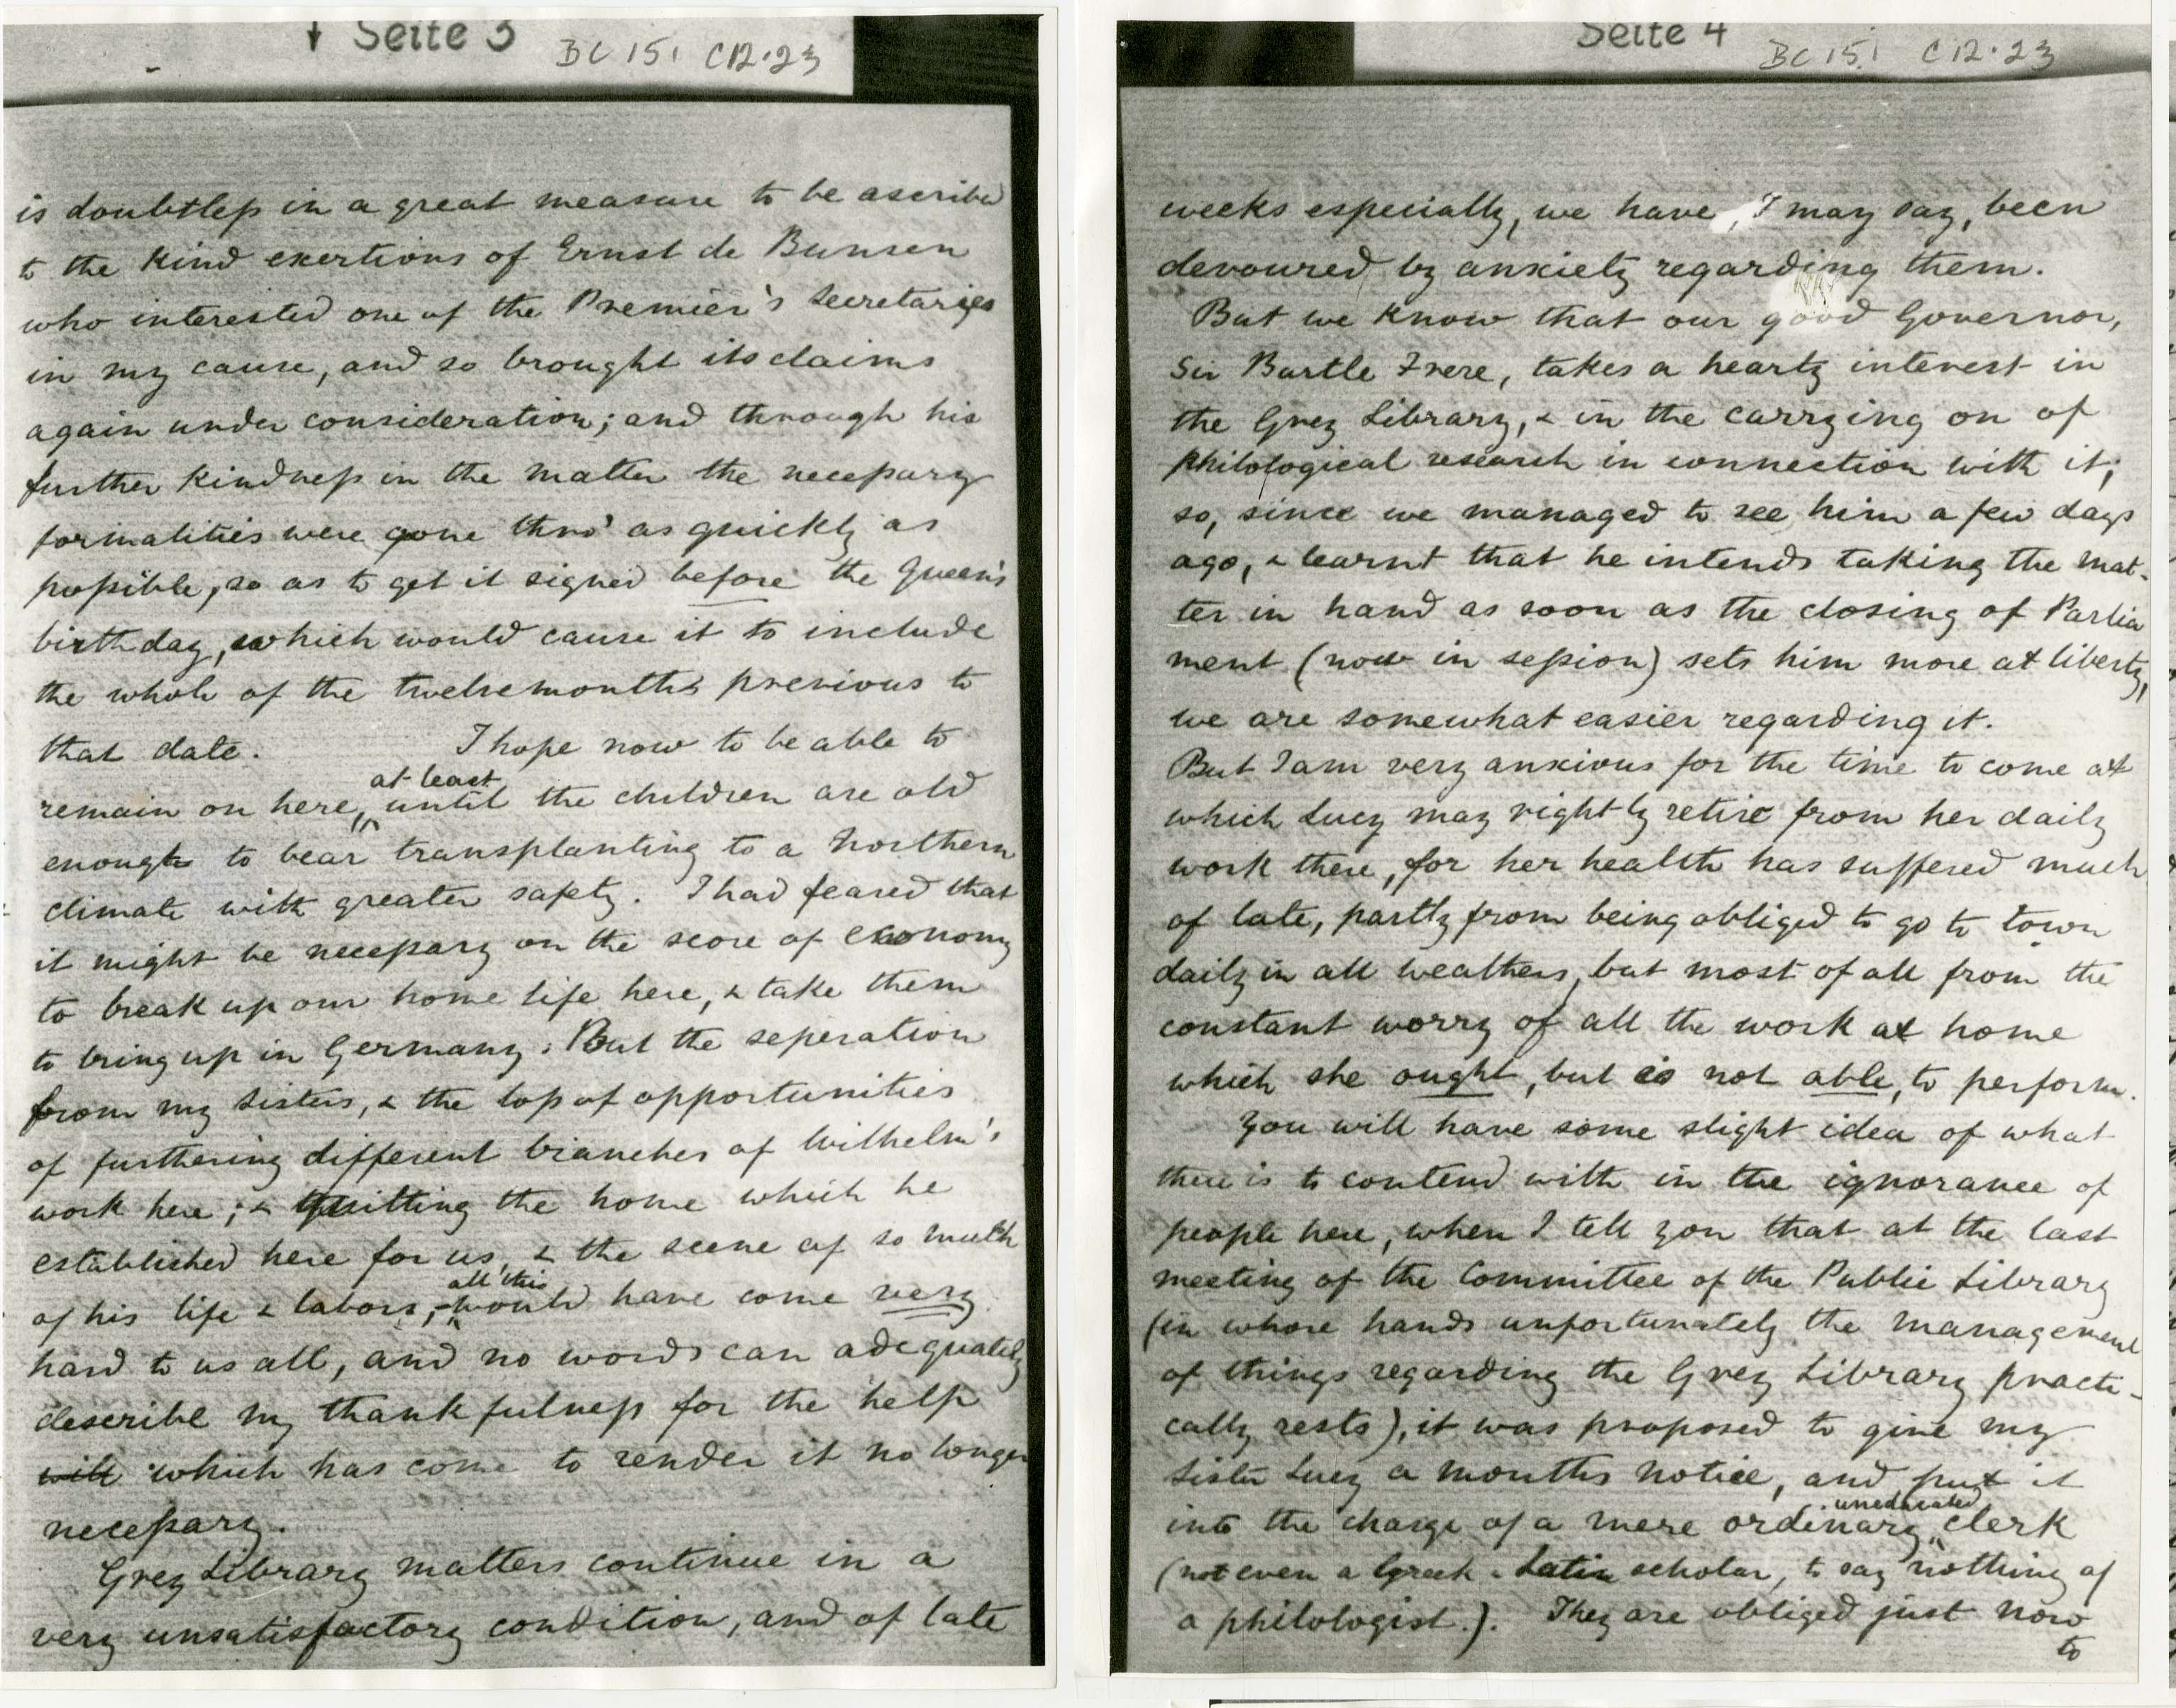 ↓ Seite 3
BC 151 C12.23
is doubtless in a great measure to be ascribed
to the kind exertions of Ernst de Bunsen
who interested one of the Premier's Secretaries
in my cause, and so brought its claims
again under consideration; and through his
further kindness in the matter the necessary
formalities were gone thro' as quickly as
possible, so as to get it signed before the Queen's
birthday, which would cause it to include
the whole of the twelvemonths previous to
that date. I hope now to be able to
remain on here, at least until the children are old
enough to bear transplanting to a Northern
climate with greater safety. I had feared that
it might be necessary on the score of economy
to break up our home life here, & take them
to bring up in Germany. But the seperation
from my sisters, & the loss of opportunities
of furthering different branches of Wilhelm's
work here; & quitting the home which he
established here for us, & the scene of so much
of his life & labors, – all this would have come very
hard to us all, and no words can adequately
describe my thankfulness for the help
will which has come to render it no longer
necessary.
Grey Library matters continue in a
very unsatisfactory condition, and of late
Seite 4
BC 151 C12.23
weeks especially, we have, I may say, been
devoured by anxiety regarding them.
But we know that our good Governor,
Sir Bartle Frere, takes a hearty interest in
the Grey Library, & in the carrying on of
philological research in connection with it;
so, since we managed to see him a few days
ago, & learnt that he intends taking the mat-
ter in hand as soon as the closing of Parlia
ment (now in session) sets him more at liberty,
we are somewhat easier regarding it.
But I am very anxious for the time to come at
which Lucy may rightly retire from her daily
work there, for her health has suffered much
of late, partly from being obliged to go to town
daily in all weathers, but most of all from the
constant worry of all the work at home
which she ought, but is not able, to perform.
You will have some slight idea of what
there is to contend with in the ignorance of
people here, when I tell you that at the last
meeting of the Committee of the Public Library
(in whose hands unfortunately the management
of things regarding the Grey Library practi-
cally rests), it was proposed to give my
sister Lucy a months notice, and put it
into the charge of a mere ordinary uneducated clerk
(not even a Greek & Latin scholar, to say nothing of
a philologist.). They are obliged just now
to